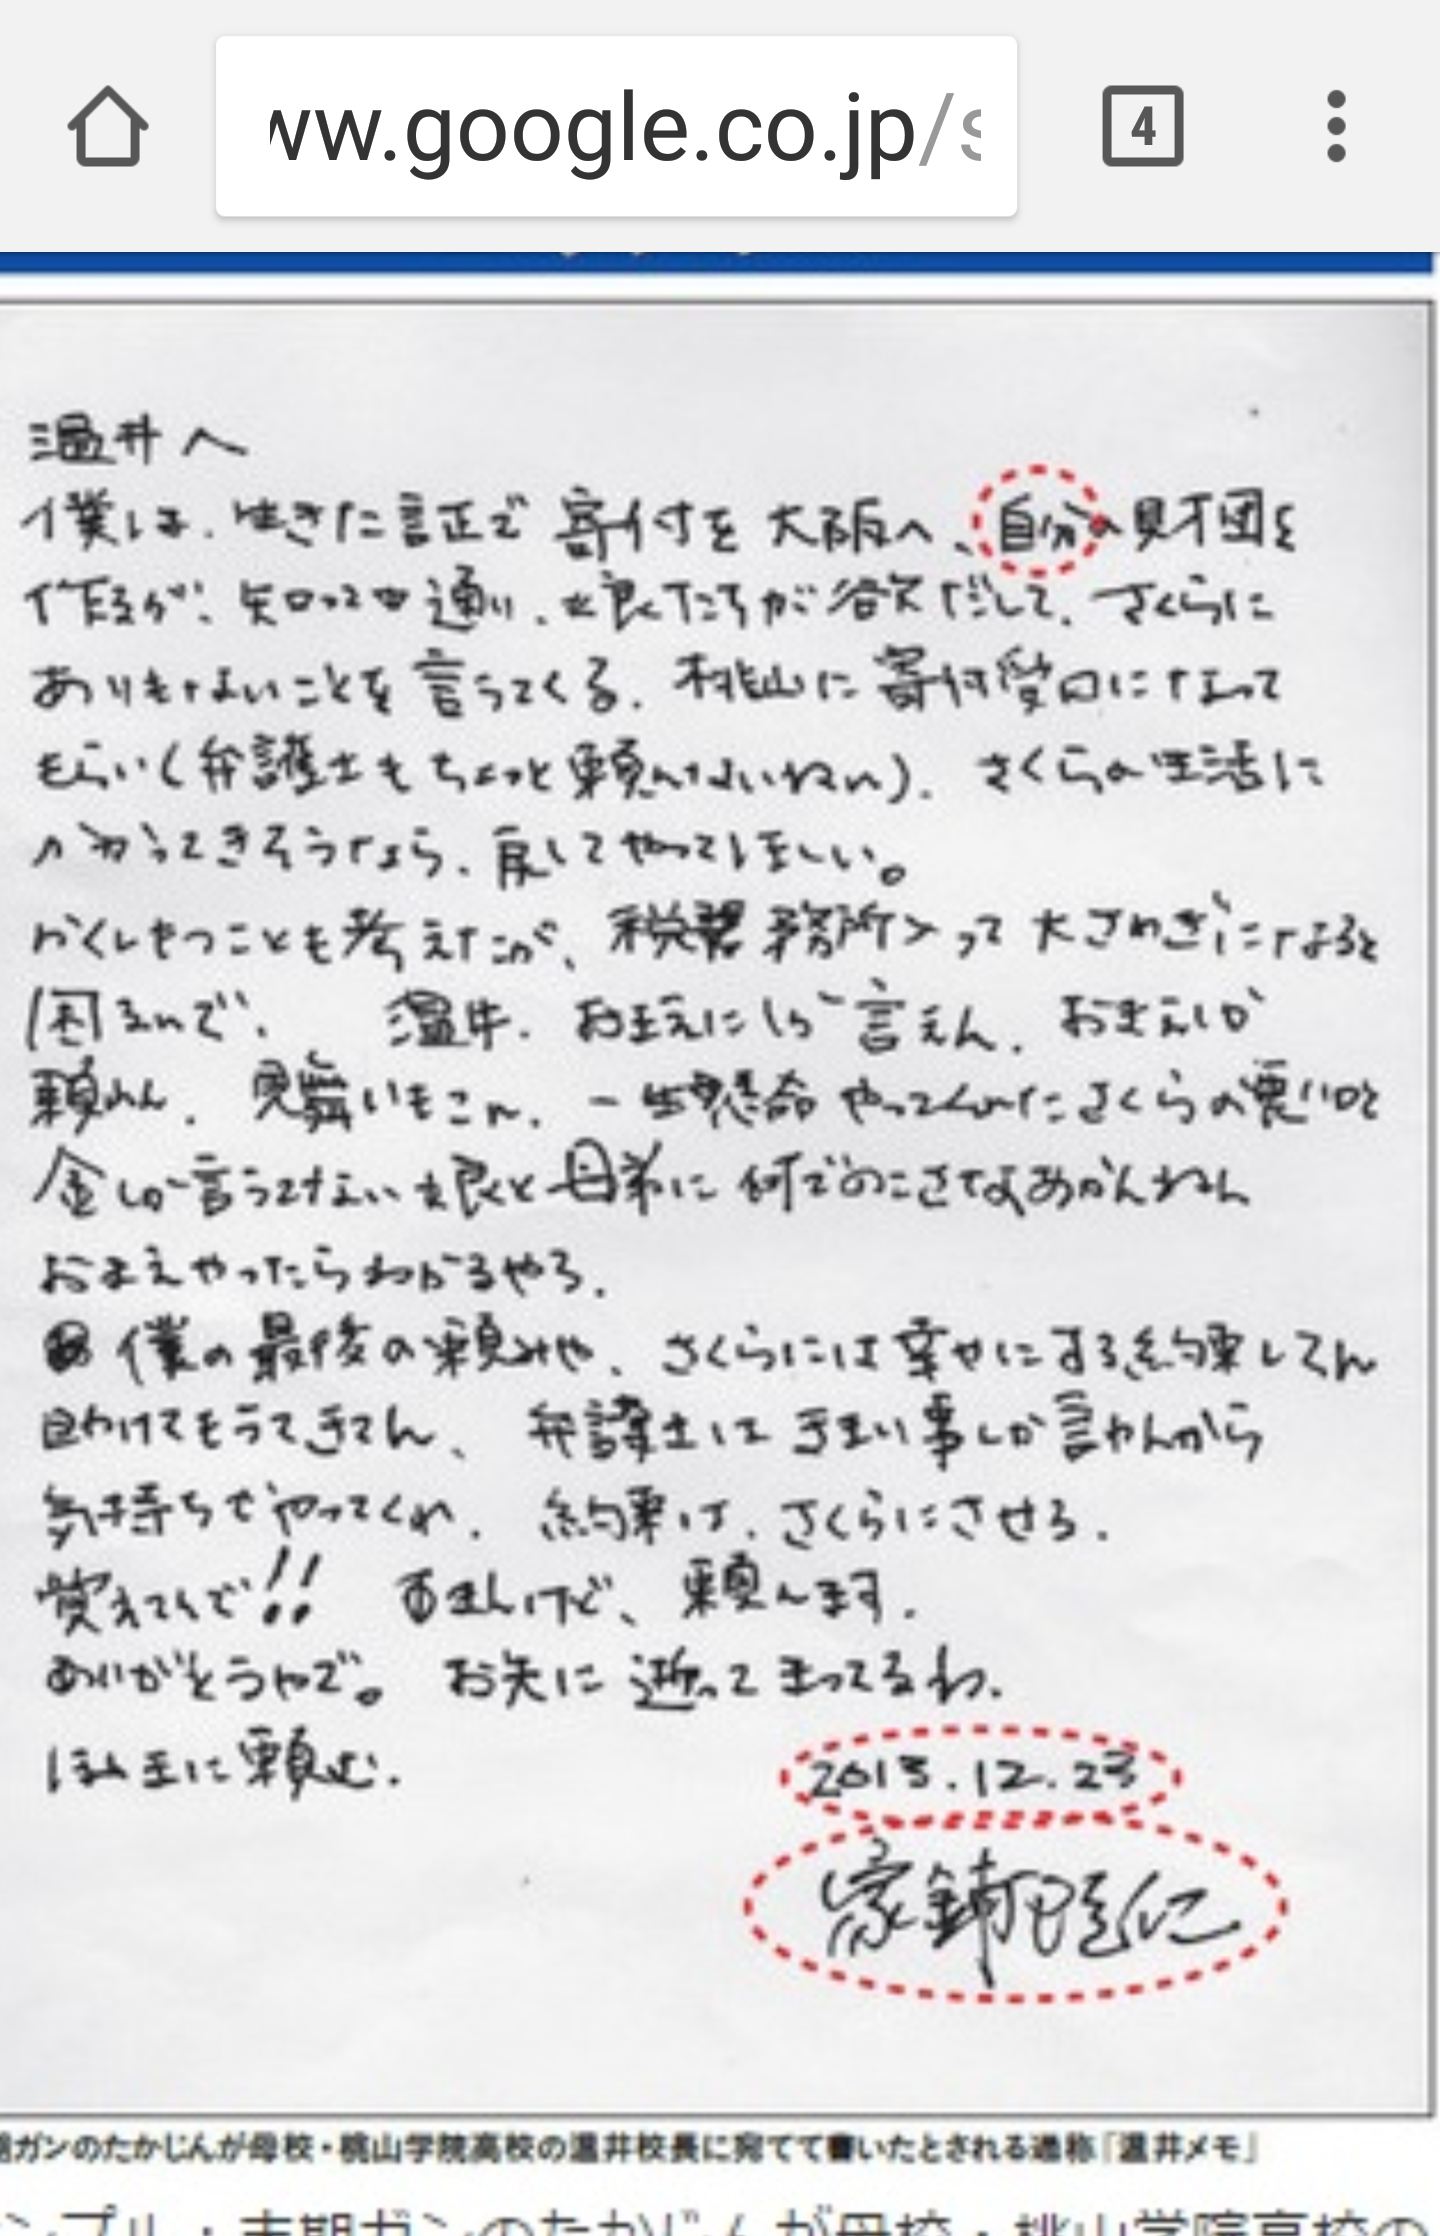 ww.google.co.jp/s
4
温井へ
僕は、生きた証正で寄付を大阪へ、自分の財団を
作るが、知っての通り、娘たちが欲だして、さくらに
ありもしないことを言うてくる。桃山に寄付受口になって
もらい(弁護士もちょっと頼んないねん)。さくらの生活に
かかってきそうなら、戻してやってほしい。
かくしもつことも考えたが、税 務所入って大さわぎになると
困るんで。 温井、おまえにしか言えん、おまえしか
頼れん。見舞いもこん、一生懸命やってくれたさくらの悪口と
金しか言うてけえない娘と母、弟に何でのこさなあかんねん
おまえやったらわかるやろ。
僕の最後の頼みや、さくらには幸せにする約束してん
助けてもうてきてん、弁護士はきまい事しか言やんから
気持ちでやってくれ。約束は、さくらにさせろ。
覚えてんで!! すまんけど、頼んます。
ありがとうやで。お先に逝ってまってるわ。
ほんまに頼む。
2013.12.23
家鋪隆仁
期ガンのたかじんが母校・桃山学院高校の温井校長に宛てて書いたとされる通称「温井メモ」
ンプル・末期ガンのたかじんが母校・桃山学院高校の